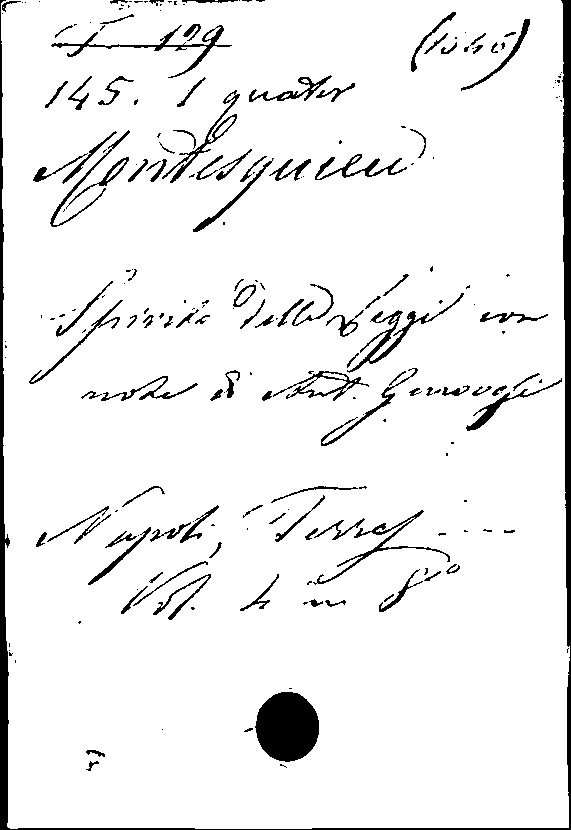 T 129 (1545)
145. 1 quater
Montesquieu
Spirito delle Leggi con
note di Ant. Genovesi
Napoli, Terres ....
Vol. 4 in 8º